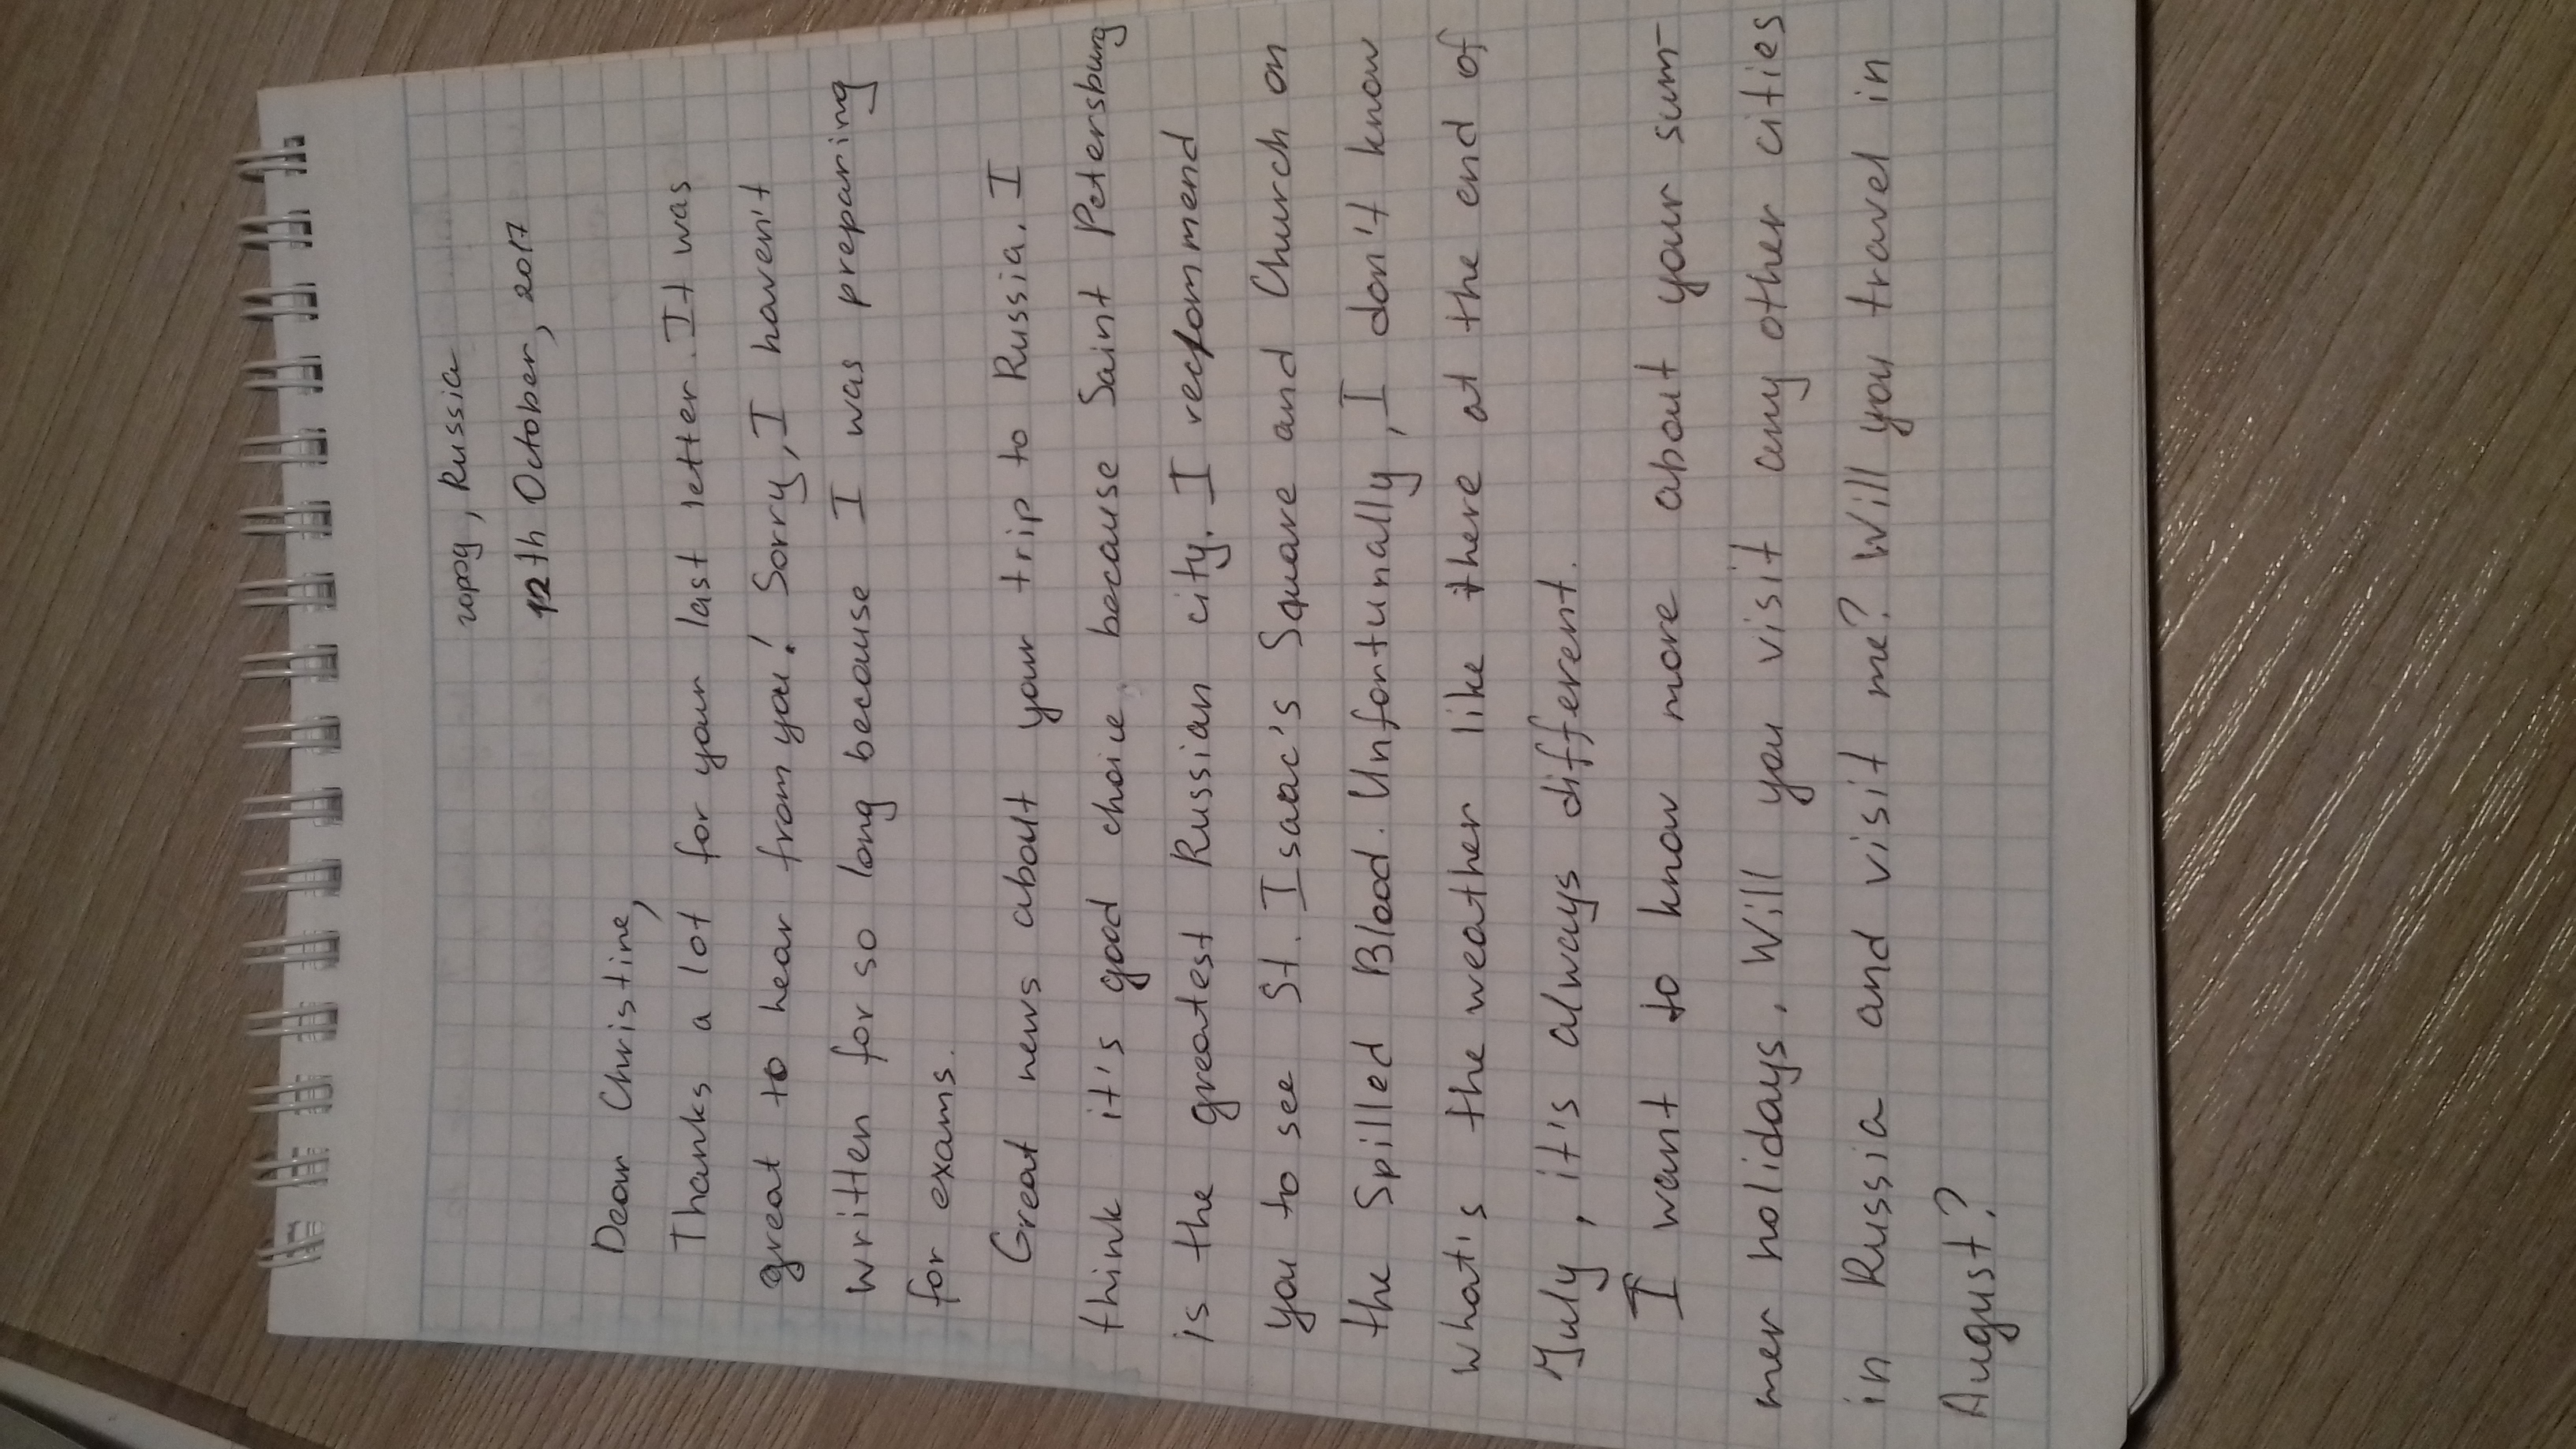 город, Russia
12th October, 2017
Dear Christine,
Thanks a lot for your last letter. It was
great to hear from you! Sorry, I haven't
written for so long because I was preparing
for exams.
Great news about your trip to Russia. I
think it's good choice because Saint Petersburg
is the greatest Russian city. I recommend
you to see St. Isaac's Square and Church on
the Spilled Blood. Unfortunally, I don't know
what's the weather like there at the end of
July, it's always different.
I want to know more about your sum-
mer holidays. Will you visit any other cities
in Russia and visit me? Will you travel in
August?